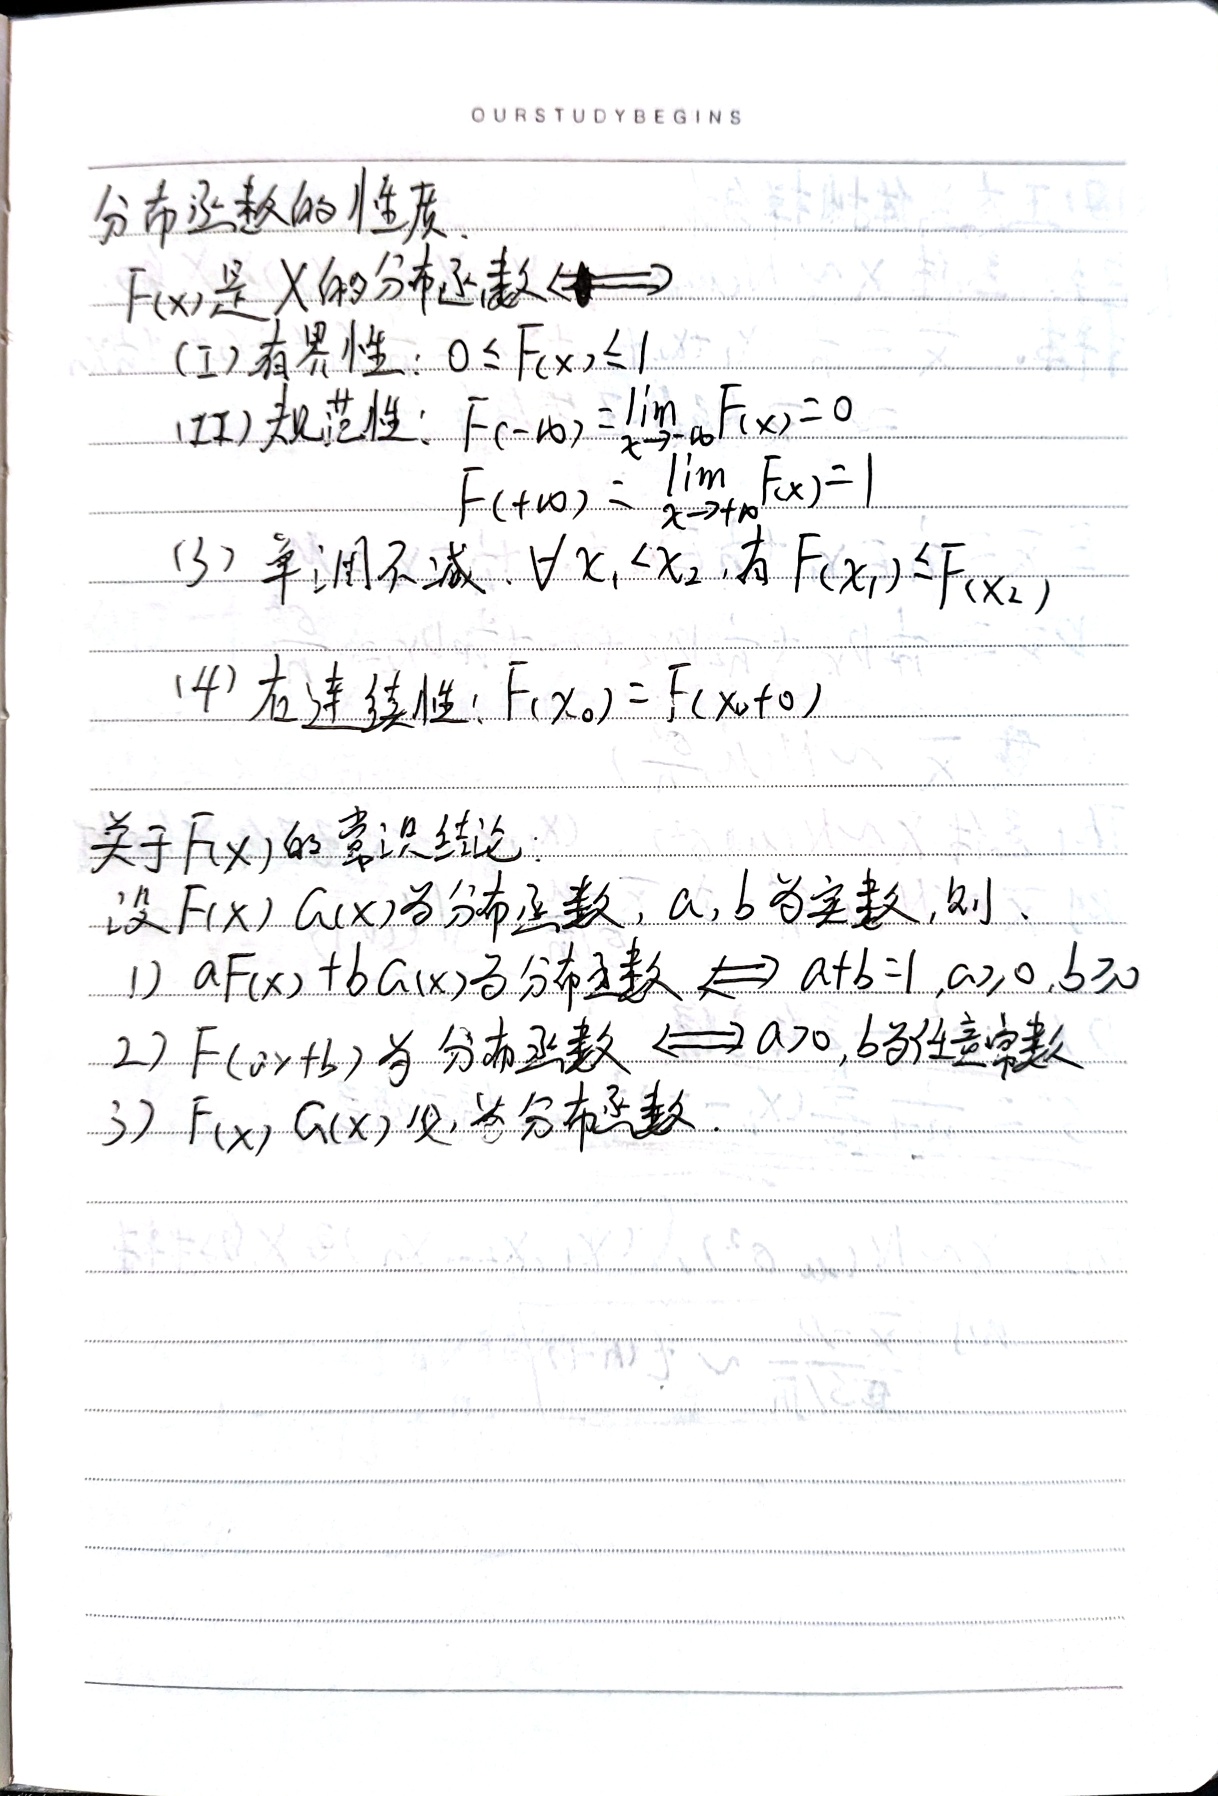 OURSTUDYBEGINS
分布函数的性质.
F(x)是X的分布函数⟺
(I)有界性: 0≤F(x)≤1
(II)规范性: F(-∞)=lim x→-∞ F(x)=0
F(+∞)=lim x→+∞ F(x)=1
(3) 单调不减. ∀x₁<x₂,有F(x₁)≤F(x₂)
(4) 右连续性: F(x₀)=F(x₀+0)
关于F(x)的常识结论:
设F(x) G(x)为分布函数, a,b为实数,则.
1) aF(x)+bG(x)为分布函数 ⟺ a+b=1,a≥0,b≥0
2) F(ax+b)为分布函数 ⟺ a>0,b为任意常数
3) F(x) G(x)必为分布函数.